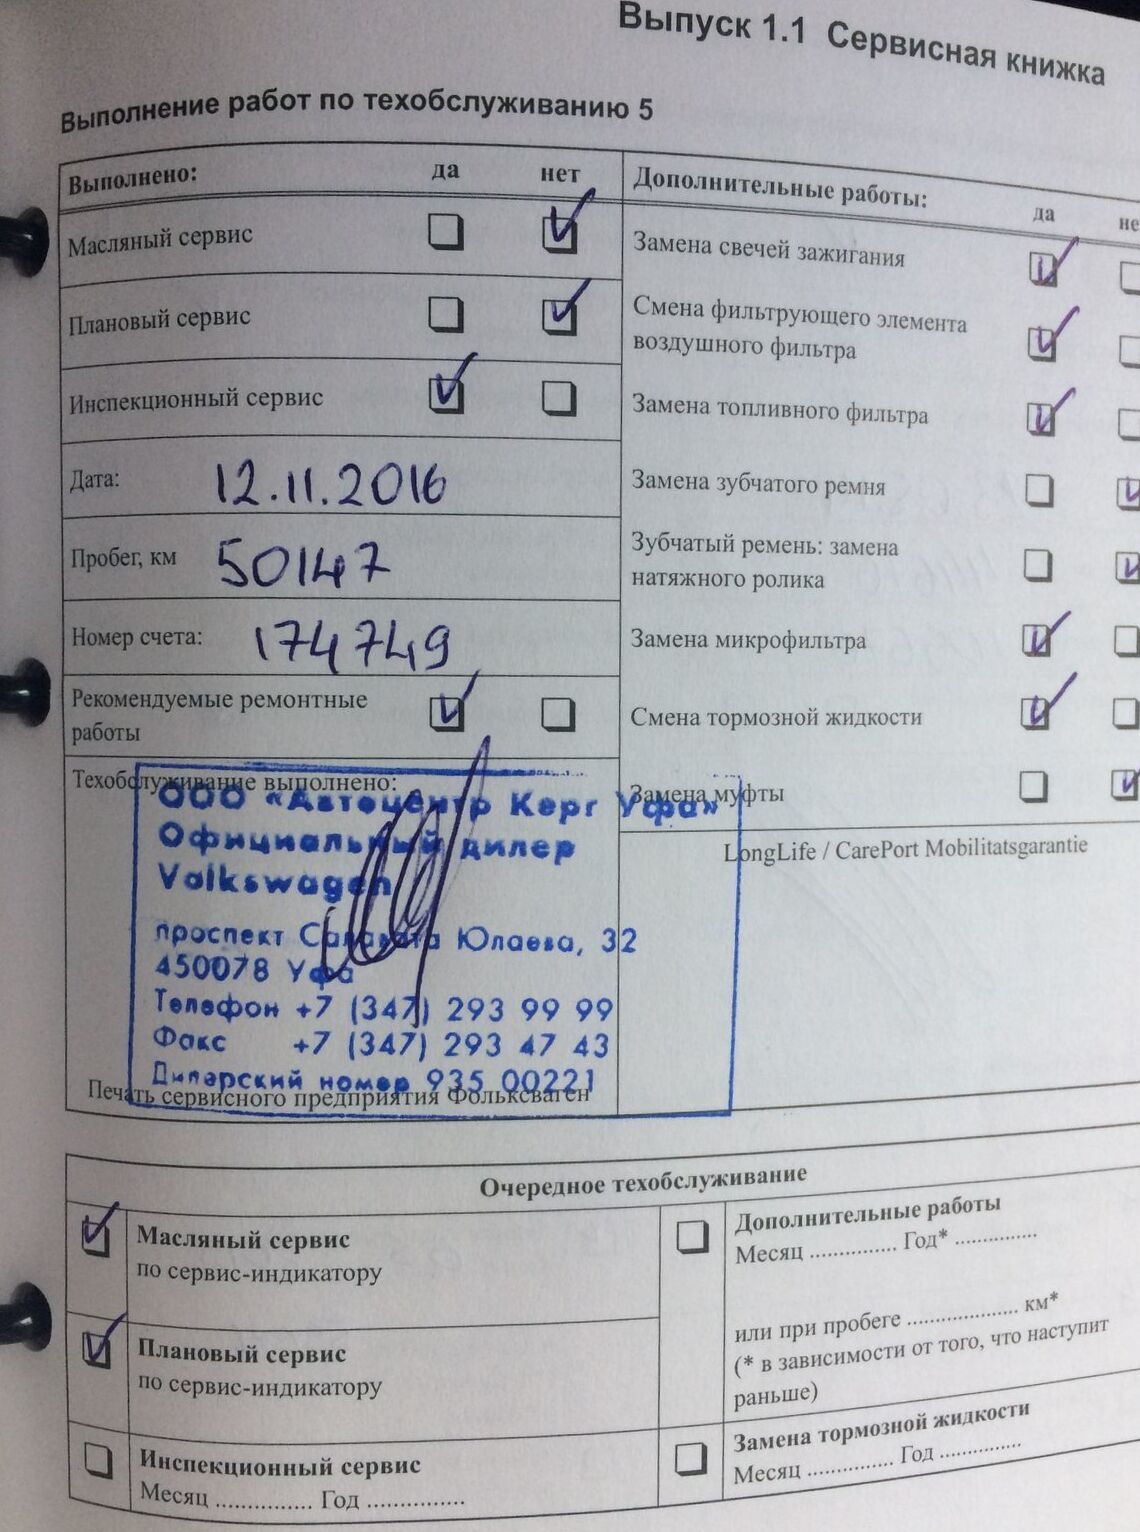 Выпуск 1.1 Сервисная книжка
Выполнение работ по техобслуживанию 5
Выполнено: да нет
Масляный сервис
Плановый сервис
Инспекционный сервис
Дата: 12.11.2016
Пробег, км 50147
Номер счета: 174749
Рекомендуемые ремонтные
работы
Техобслуживание выполнено:
ООО «Автоцентр Керг Уфа»
Официальный дилер
Volkswagen
проспект Салавата Юлаева, 32
450078 Уфа
Телефон +7 (347) 293 99 99
Факс +7 (347) 293 47 43
Дилерский номер 935 00221
Печать сервисного предприятия Фольксваген
Дополнительные работы:
да не
Замена свечей зажигания
Смена фильтрующего элемента
воздушного фильтра
Замена топливного фильтра
Замена зубчатого ремня
Зубчатый ремень: замена
натяжного ролика
Замена микрофильтра
Смена тормозной жидкости
Замена муфты
LongLife / CarePort Mobilitatsgarantie
Очередное техобслуживание
Масляный сервис
по сервис-индикатору
Плановый сервис
по сервис-индикатору
Инспекционный сервис
Месяц ............... Год ...............
Дополнительные работы
Месяц ............... Год* ...............
или при пробеге .................... км*
(* в зависимости от того, что наступит
раньше)
Замена тормозной жидкости
Месяц ............... Год ...............